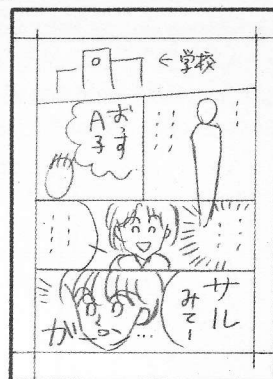 ←学校
おっす
A子
サル
みてー
ガーン…